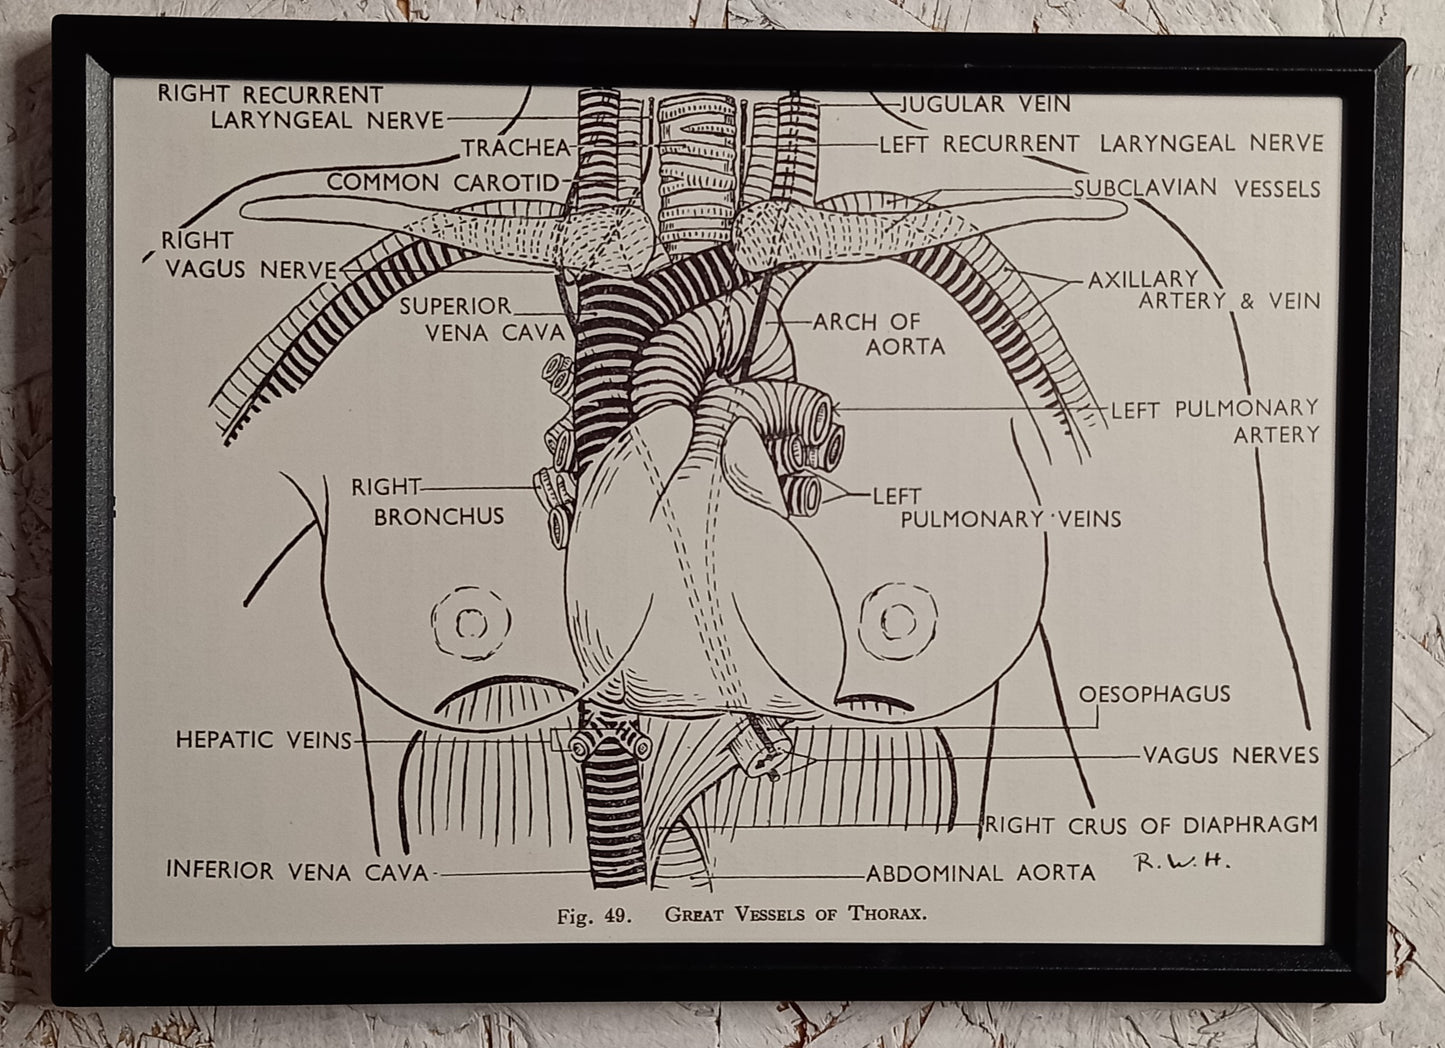 RIGHT RECURRENT
LARYNGEAL NERVE
TRACHEA
COMMON CAROTID
RIGHT
VAGUS NERVE
SUPERIOR
VENA CAVA
RIGHT
BRONCHUS
HEPATIC VEINS
INFERIOR VENA CAVA
JUGULAR VEIN
LEFT RECURRENT LARYNGEAL NERVE
SUBCLAVIAN VESSELS
AXILLARY
ARTERY & VEIN
ARCH OF
AORTA
LEFT PULMONARY
ARTERY
LEFT
PULMONARY VEINS
OESOPHAGUS
VAGUS NERVES
RIGHT CRUS OF DIAPHRAGM
R.W.H.
ABDOMINAL AORTA
Fig. 49. GREAT VESSELS OF THORAX.